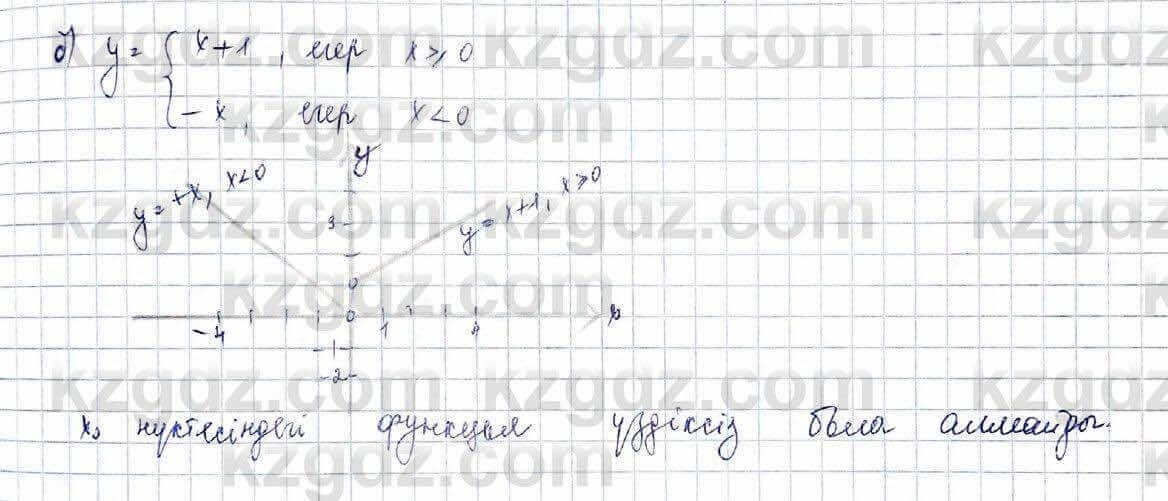 б) y = { x+1, егер x ≥ 0
- x, егер x < 0
y
y = +x, x<0
y = x+1, x≥0
3
0
-4 0 1 4 x
-1
-2
x₀ нүктесіндегі функция үздіксіз бола алмайды.
kzgdz.com